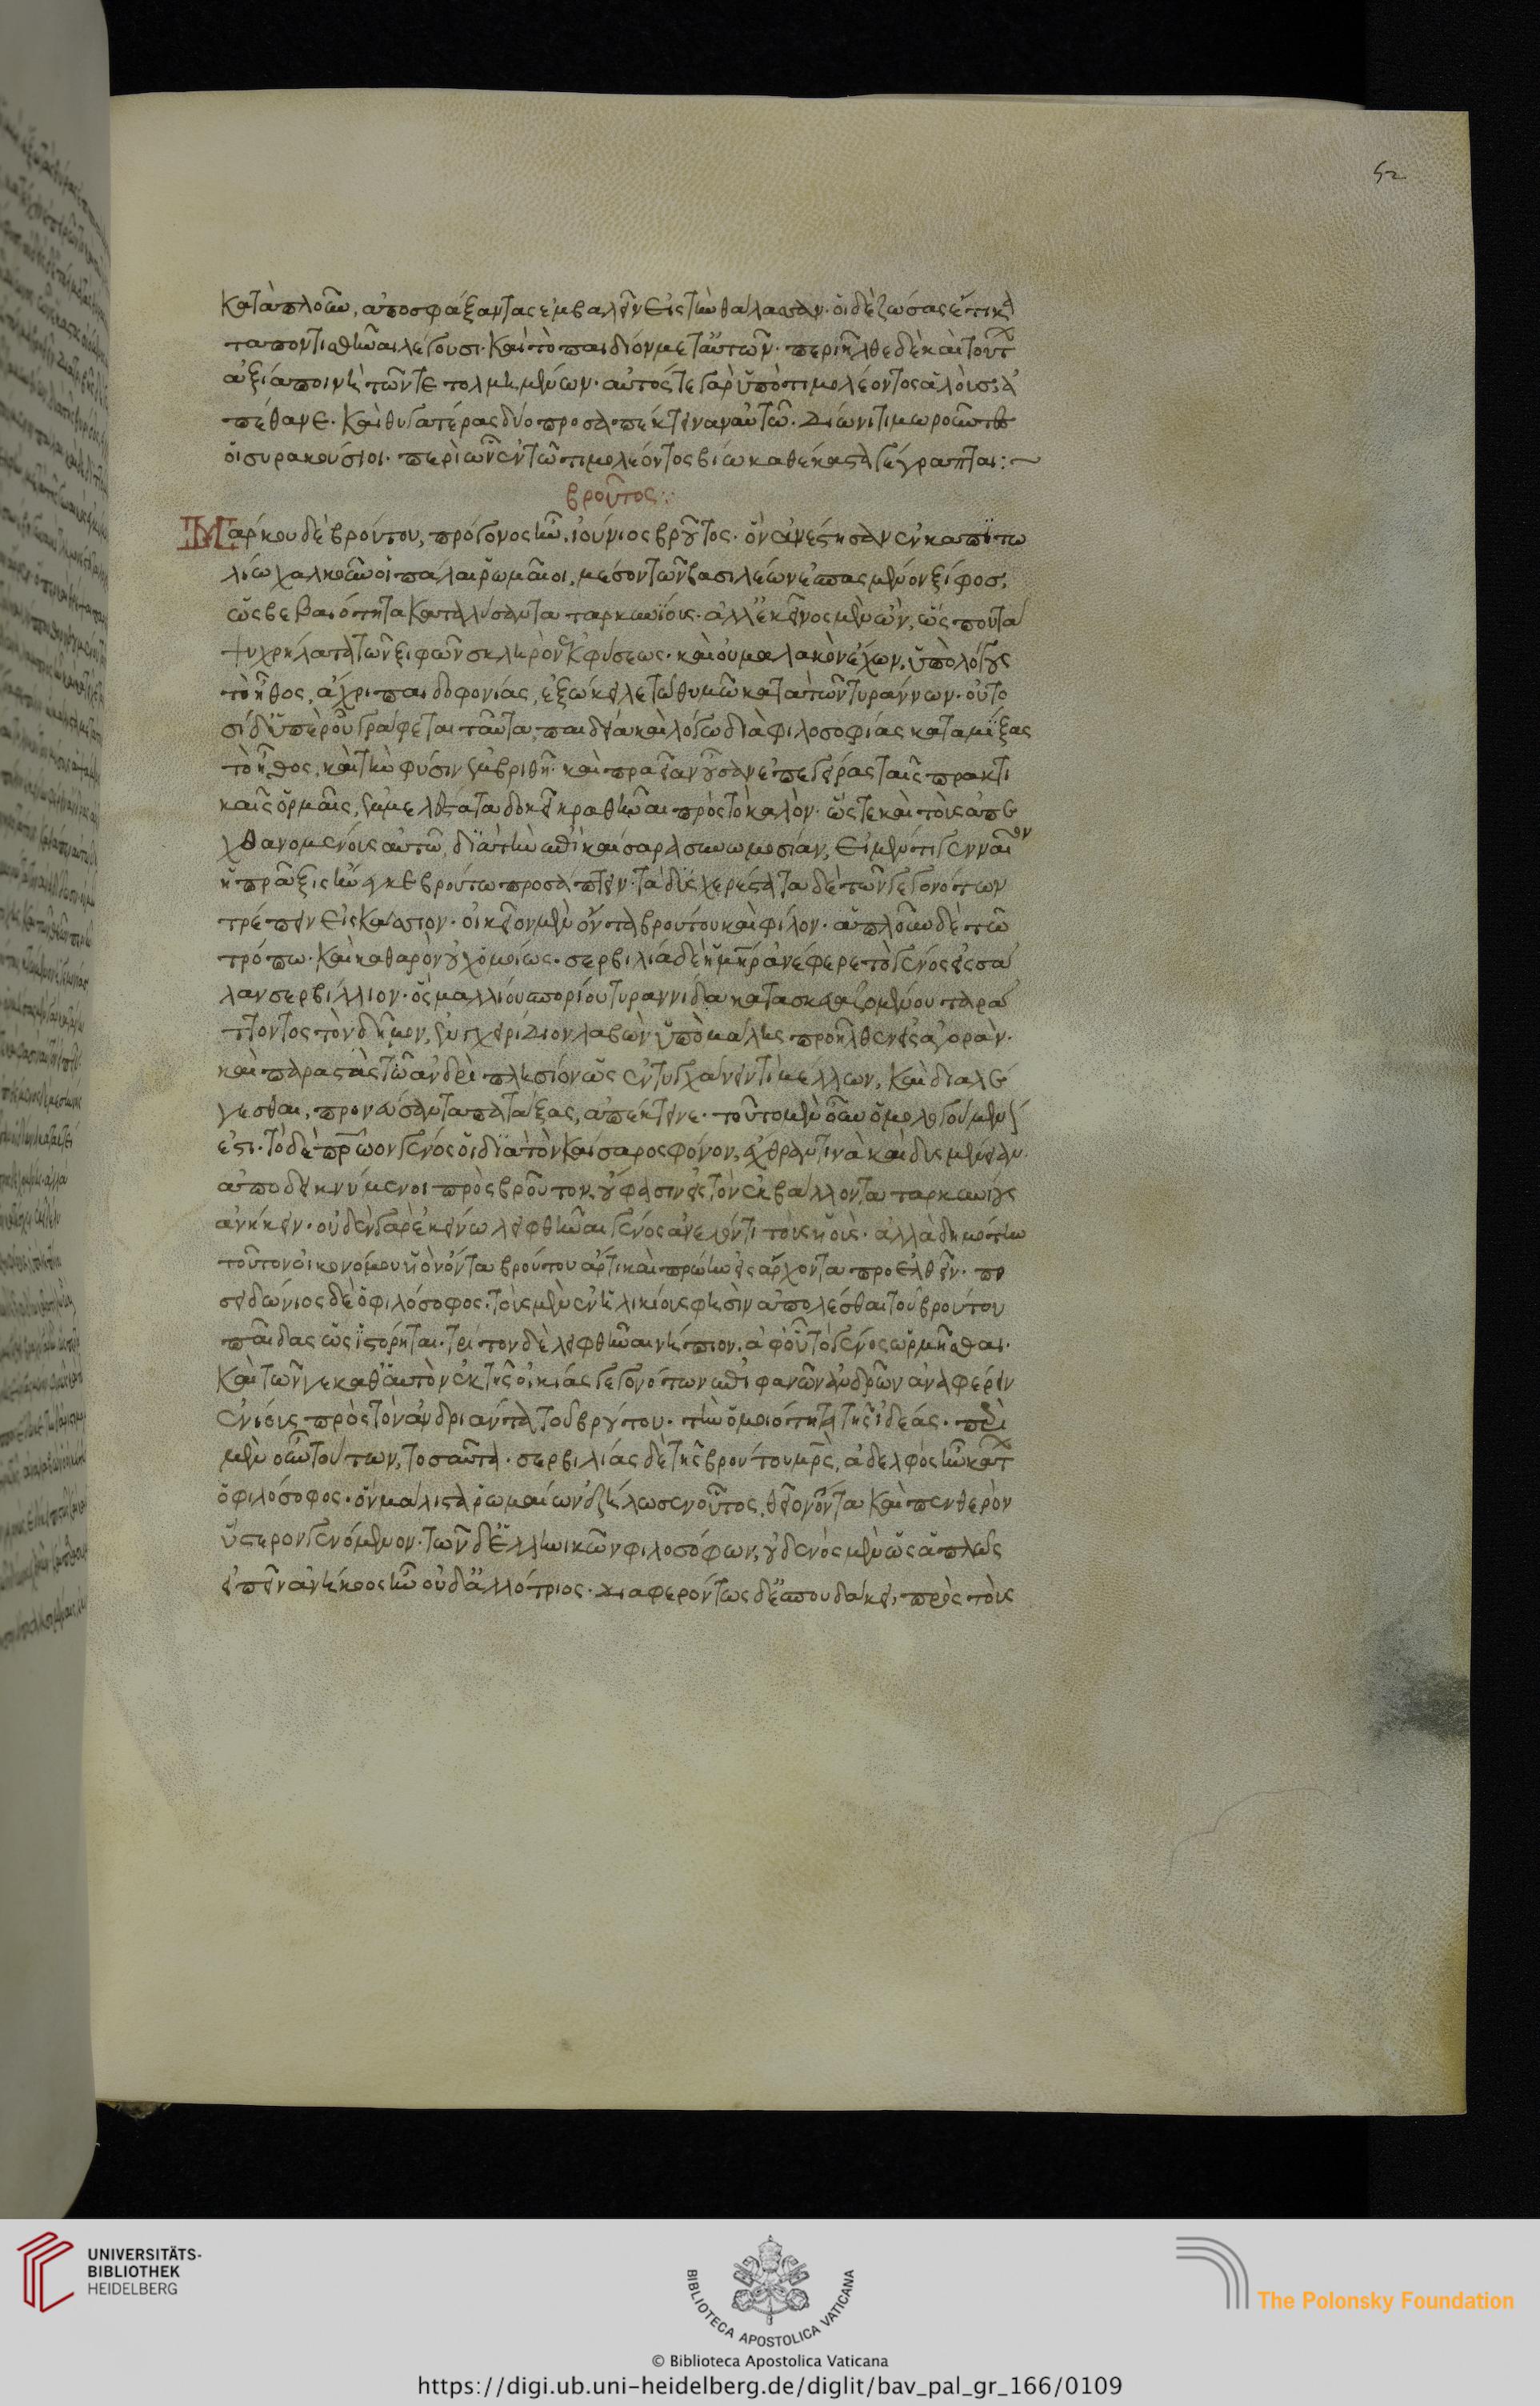 52
κατὰ πλοῦν, ἀποσφάξαντας ἐμβαλεῖν εἰς τὴν θάλασσαν· οἱ δὲ ζώσας ἔτι κα
ταποντισθῆναι λέγουσι· καὶ τὸ παιδίον μετ' αὐτῶν· περιῆλθε δὲ καὶ τοῦτ
ἀξία ποινὴ τῶν τετολμημένων· αὐτός τε γὰρ ὑπὸ τιμολέοντος ἁλοὺς, ἀ
πέθανε· καὶ θυγατέρας δύο προσαπέκτειναν αὐτῶ· Δίωνι τιμωροῦντες
οἱ συρακούσιοι· περὶ ὧν ἐν τῶ τιμολέοντος βίω καθέκαστα γέγραπται:~
βροῦτος:
Μάρκου δὲ βρούτου, πρόγονος ἦν ἰούνιος βροῦτος· ὃν ἀνέστησαν ἐν καπιτω
λίω χαλκοῦν οἱ πάλαι ῥωμαῖοι, μέσον τῶν βασιλέων ἐσπασμένον ξίφος,
ὡς βεβαιότητα καταλύσαντα ταρκυνίους· ἀλλ' ἐκεῖνος μὲν ὢν, ὥσπου τὰ
ψυχρήλατα τῶν ξιφῶν σκληρὸν ἐκ φύσεως· καὶ οὐ μαλακὸν ἔχων, ὑπὸ λόγου
τὸ ἦθος, ἄχρι παιδοφονίας, ἐξώκειλε τῶ θυμῶ κατὰ τῶν τυράννων· οὑτο
σὶ δ' ὑπὲρ οὗ γράφεται ταῦτα, παιδεία καὶ λόγω διὰ φιλοσοφίας καταμίξας
τὸ ἦθος, καὶ τὴν φύσιν ἐμβριθῆ· καὶ πραεῖαν οὖσαν ἐπεγείρας ταῖς πρακτι
καῖς ὁρμαῖς, ἐμμελέστατα δοκεῖ κραθῆναι πρὸς τὸ καλόν· ὥστε καὶ τοὺς ἀπε
χθανομένους αὐτῶ, διὰ τὴν ἐπὶ καίσαρα συνωμοσίαν, εἰ μέν τι γενναῖον
ἡ πρᾶξις ἤνεγκε βρούτω προσάπτειν· τὰ δυσχερέστατα δὲ τῶν γεγονότων
τρέπειν εἰς κάσσιον· οἰκεῖον μὲν ὄντα βρούτου καὶ φίλον· ἁπλοῦν δὲ τῶ
τρόπω· καὶ καθαρὸν οὐχ ὁμοίως· σερβιλία δὲ ἡ μήτηρ ἀνέφερε τὸ γένος εἰς ἅ
λαν σερβίλλιον· ὃς μαλλίου σπορίου τυραννίδα κατασκευαζομένου ταρά
ττοντος τὸν δῆμον, ἐγχειρίδιον λαβὼν ὑπὸ μάλης προῆλθεν εἰς ἀγοράν·
καὶ παραστὰς τῶ ἀνδρὶ πλησίον ὡς ἐντυγχάνειν τι μέλλων, καὶ διαλέ
γεσθαι, προνεύσαντα πατάξας, ἀπέκτεινε· τοῦτο μὲν οὖν ὁμολογούμενόν
ἐστι· τὸ δὲ πατρῶον γένος οἱ διὰ τὸν καίσαρος φόνον, ἔχθραν τινὰ καὶ δυσμένειαν
ἀποδεικνύμενοι πρὸς βροῦτον, οὔ φασιν εἰς τὸν ἐκβάλλοντα ταρκυνίους
ἀνήκειν· οὐδὲν γὰρ ἐκείνω λειφθῆναι γένος ἀνελόντι τοὺς υἱούς· ἀλλὰ δημότην
τοῦτον οἰκονόμου υἱὸν ὄντα βρούτου ἄρτι καὶ πρώην εἰς ἄρχοντα προελθεῖν· πο
σειδώνιος δὲ ὁ φιλόσοφος· τοὺς μὲν ἐν ἡλικίους φησὶν ἀπολέσθαι τοῦ βρούτου
παῖδας ὡς ἱστόρηται· τρίτον δὲ λειφθῆναι νήπιον, ἀφ' οὗ τὸ γένος ὡρμῆσθαι·
καὶ τῶν γε καθ' αὑτὸν ἐκ τῆς οἰκίας γεγονότων ἐπιφανῶν ἀνδρῶν ἀναφέρειν
ἐνίους πρὸς τὸν ἀνδριάντα τοῦ βρούτου· τὴν ὁμοιότητα τῆς ἰδέας· περὶ
μὲν οὖν τούτων, τοσαῦτα· σερβιλίας δὲ τῆς βρούτου μητρὸς, ἀδελφὸς ἦν κάτ
ὁ φιλόσοφος· ὃν μάλιστα ῥωμαίων ἐζήλωσεν οὗτος, θεῖον ὄντα καὶ πενθερὸν
ὕστερον γενόμενον· τῶν δ' ἑλληνικῶν φιλοσόφων, οὐδενὸς μὲν ὡς ἁπλῶς
εἰπεῖν ἀνήκοος ἦν οὐδ' ἀλλότριος· διαφερόντως δ' ἐσπουδάκει, πρὸς τοὺς
UNIVERSITÄTS-
BIBLIOTHEK
HEIDELBERG
BIBLIOTECA APOSTOLICA VATICANA
© Biblioteca Apostolica Vaticana
The Polonsky Foundation
https://digi.ub.uni-heidelberg.de/diglit/bav_pal_gr_166/0109